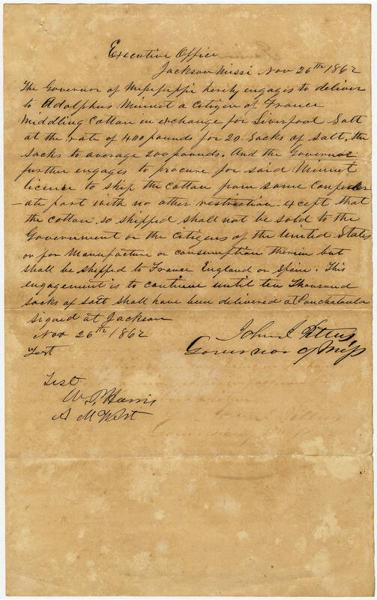 Executive Office
Jackson Missi Nov 26th 1862
The Governor of Mississippi hereby engages to deliver
to Adolphus Minnet a Citizen of France
Middling Cotton in exchange for Liverpool Salt
at the rate of 400 pounds for 20 Sacks of Salt, the
sacks to average 200 pounds. And the Governor
further engages to procure for said Minnet
licence to ship the Cotton from some Confeder
-ate port with no other restriction except that
the cotton so shipped shall not be sold to the
Government or the Citizens of the United States
or for Manufacture or consumption therein but
shall be shipped to France England or Spain. This
engagement is to continue until ten Thousand
sacks of salt shall have been delivered at Ponchatoula
signed at Jackson
Nov 26th 1862
John J Pettus
Governor of Miss
Test
W P Harris
A M West